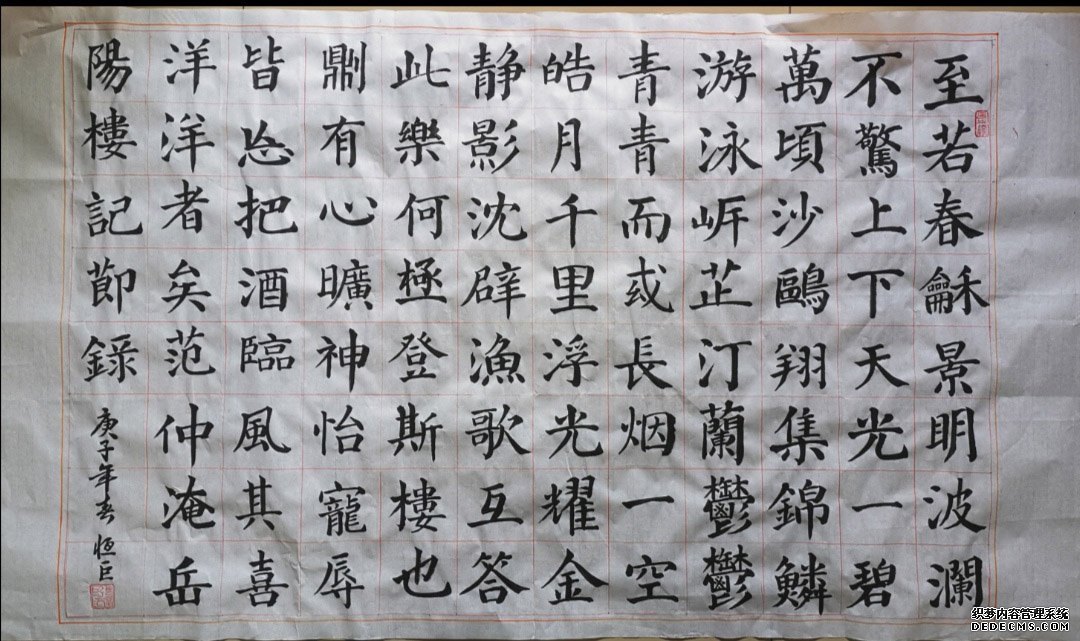 至若春龢景明波瀾
不驚上下天光一碧
萬頃沙鷗翔集錦鱗
游泳岸芷汀蘭鬱鬱
青青而或長烟一空
皓月千里浮光耀金
静影沈辟漁歌互答
此樂何極登斯樓也
有心曠神怡寵辱
皆忘把酒臨風其喜
洋洋者矣范仲淹岳
陽樓記節錄
庚子年春 恒巨
织梦内容管理系统
DEDECMS.COM